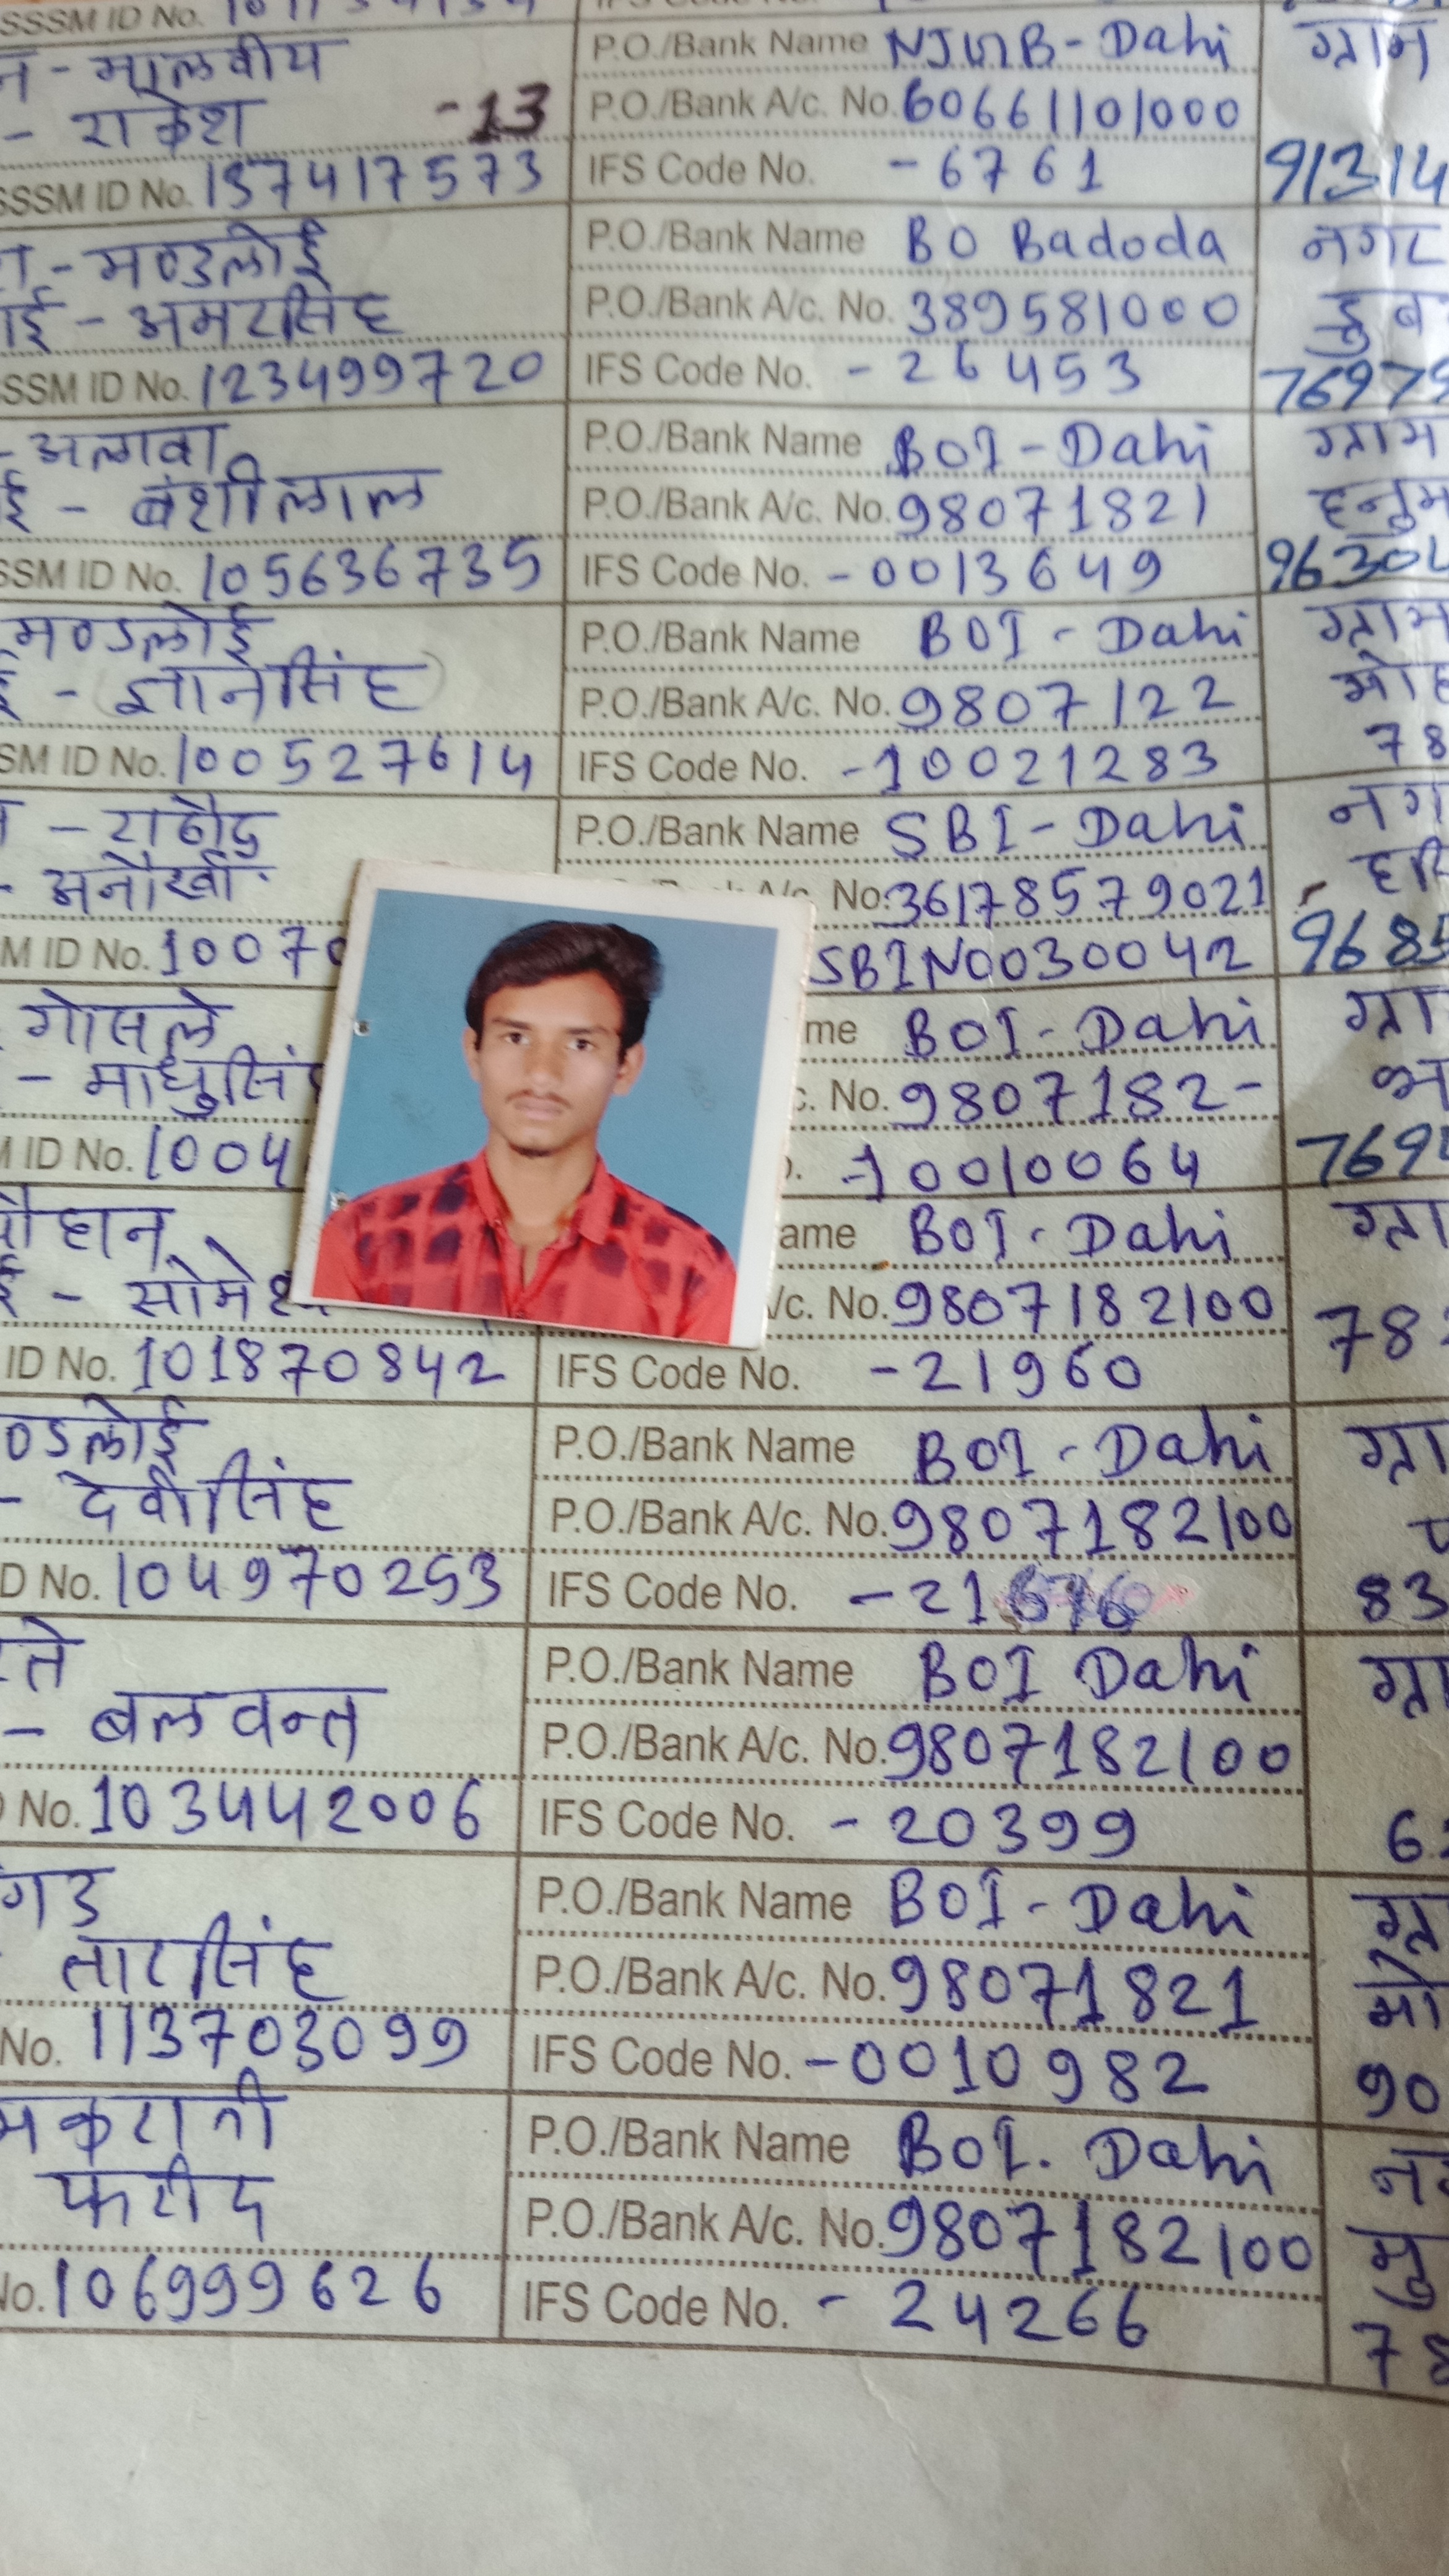 SSSM ID No.
न - मालवीय
P.O./Bank Name NJGB - Dahi
ग्राम
- राकेश -13
P.O./Bank A/c. No. 60661101000
SSSM ID No. 137417573
IFS Code No. - 6761
91314
- मण्डलोई
P.O./Bank Name BO Badoda
नगर
ाई - अमरसिंह
P.O./Bank A/c. No. 389581000
SSM ID No. 123499720
IFS Code No. - 26453
76979
- अलावा
P.O./Bank Name BOI - Dahi
ग्राम
ई - बंशीलाल
P.O./Bank A/c. No. 98071821
हनुम
SSM ID No. 105636735
IFS Code No. - 0013649
96304
मण्डलोई
P.O./Bank Name BOI - Dahi
ग्राम
ई - (ज्ञानसिंह)
P.O./Bank A/c. No. 9807122
मोह
SM ID No. 100527614
IFS Code No. - 10021283
78
- राठौड़
P.O./Bank Name SBI - Dahi
नग
- अनोखी
No. 36178579021
हरि
M ID No. 10070
SBIN0030042
9685
गोसले
me BOI - Dahi
ग्रा
- माधुसिंह
c. No. 9807182 -
ID No. 1004
- 10010064
769
चौहान
ame BOI - Dahi
ग्रा
ई - सोमेश
/c. No. 9807182100
ID No. 101870842
IFS Code No. - 21960
78
ण्डलोई
P.O./Bank Name BOI - Dahi
ग्रा
- देवीसिंह
P.O./Bank A/c. No. 9807182100
D No. 104970253
IFS Code No. - 21676
83
P.O./Bank Name BOI Dahi
ग्रा
- बलवन्त
P.O./Bank A/c. No. 9807182100
No. 103442006
IFS Code No. - 20399
6
P.O./Bank Name BOI - Dahi
ग्रा
तारसिंह
P.O./Bank A/c. No. 98071821
मो
No. 113703099
IFS Code No. - 0010982
90
मकरानी
P.O./Bank Name BOI. Dahi
फरीद
P.O./Bank A/c. No. 9807182100
मु
No. 106999626
IFS Code No. - 24266
78